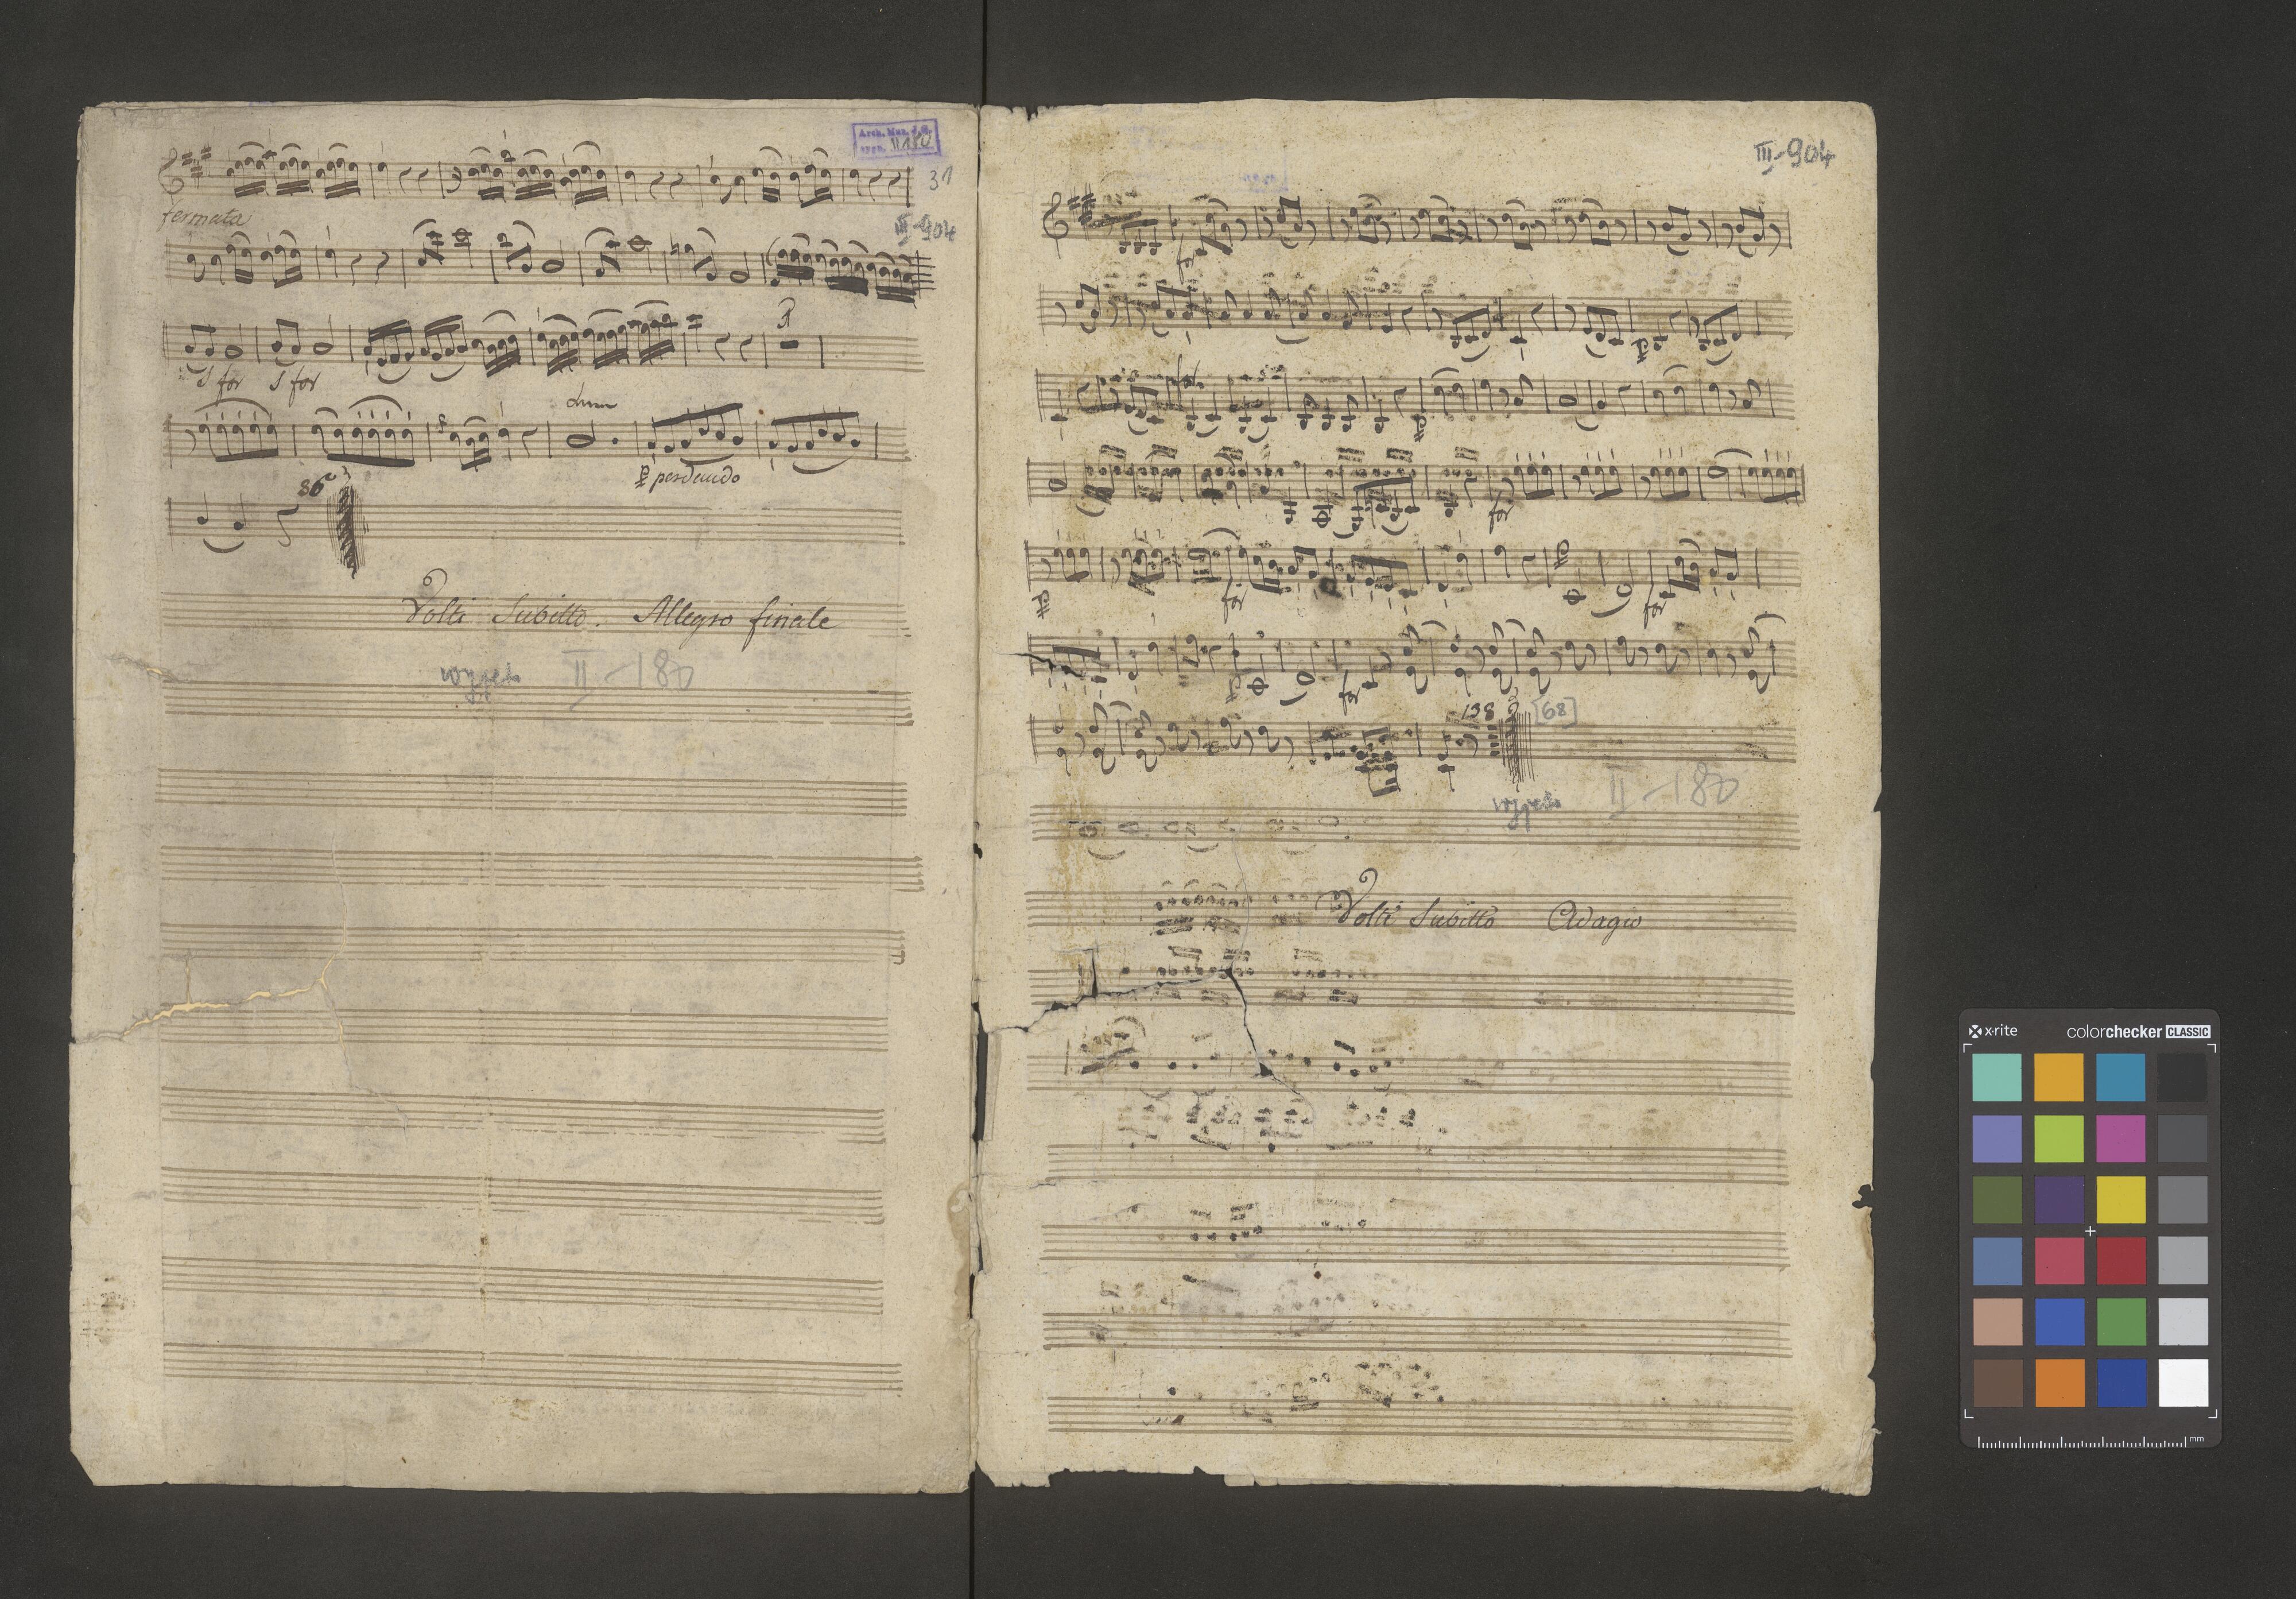 Arch. Mus. J. G.
II 180
31
fermata
III-904
s for s for
3
p perdendo
86
Volti Subitto. Allegro finale
II-180
III-904
for
for
for
p
for
p
for
p
for
138
[68]
II-180
Volti Subitto Adagio
x-rite colorchecker CLASSIC
mm